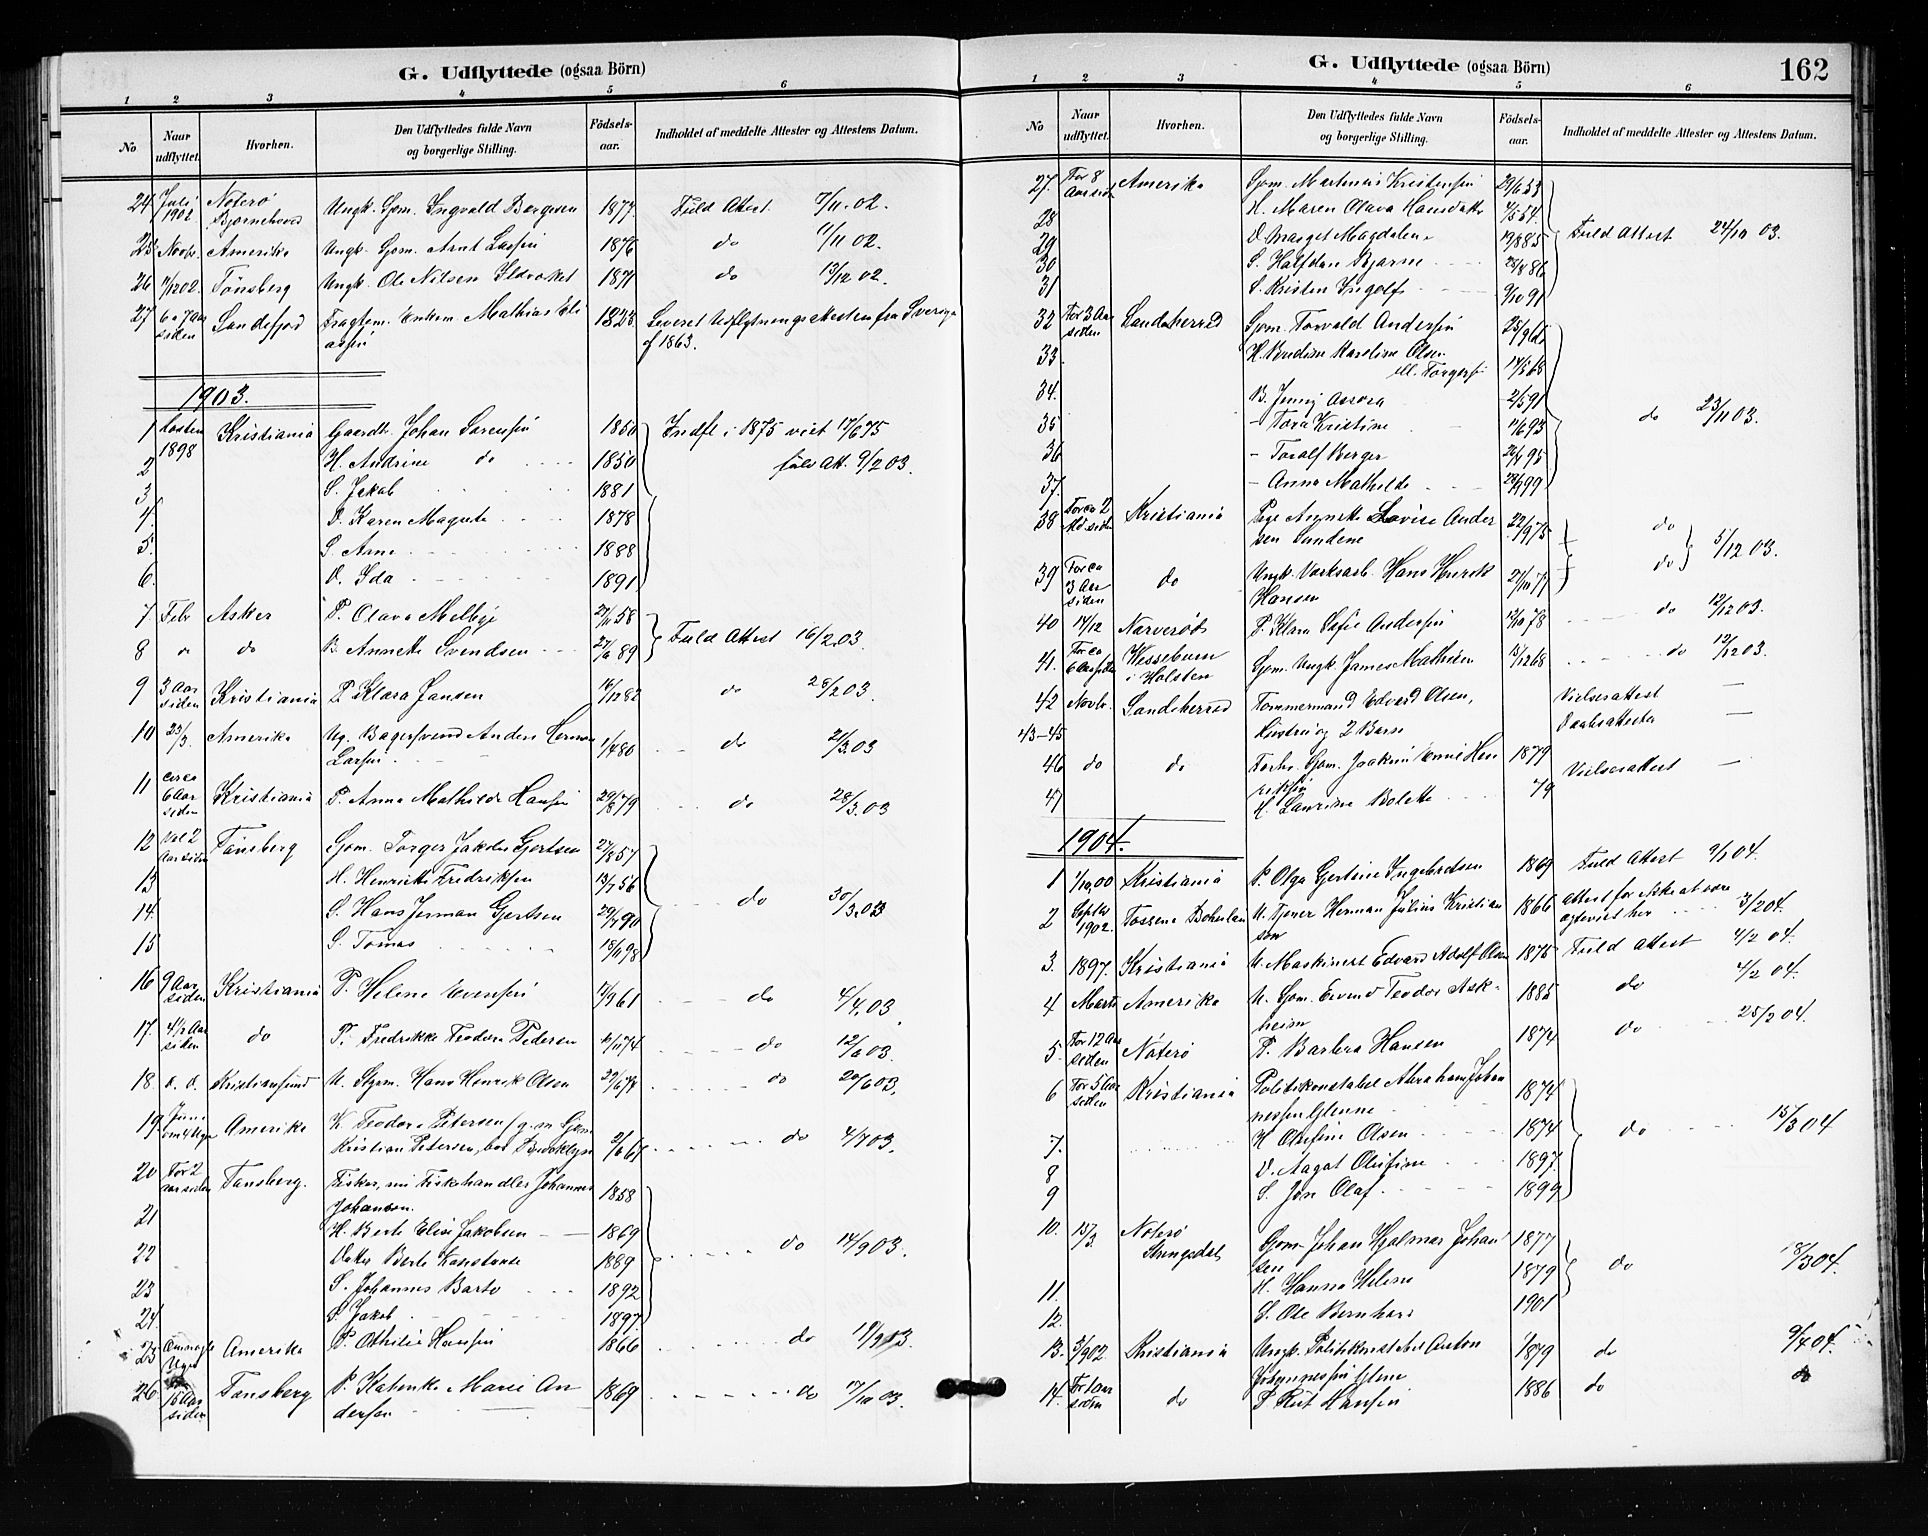 G. Udflyttede (ogsaa Börn)
1 2 3 4 5 6
No Naar udflyttet. Hvorhen. Den Udflyttedes fulde Navn og borgerlige Stilling. Födsels-aar. Indholdet af meddelte Attester og Attestens Datum.
24 Juli 1902 Noterö Ungk. Sjom. Ingvald Borgesen 1877 Fuld Attest 7/11.02.
25 Novbr. Amerika Ungk. Sjom. Arnt 1876 do 11/11 02.
26 11/12 02. Tönsberg Ungk. Ole Nilsen 1871 do 13/12 02.
27 6 a 7 Aar siden Sandefjord Enkem. Mathias Eli
assen 1823 Leveret Udflytningsattesten fra Sverige
af 1863.
1903.
1 1898 Kristiania Gaardb. Johan Sorensen 1850 Indfl i 1875 17/6 75
2 H. Andrine do 1850 fuld Att. 9/2 03.
3 S. Jakob 1881
4. D. Karen Magrete 1878
5. S. Arne 1888
6. D. Ida 1891
7 Febr Asker P. Olava Melbye 58
8 " do B. Annette Svendsen 89 Fuld Attest 16/2.03
9 3 Aar siden Kristiania P. Klara Jansen 16/12 82 do 28/2 03.
10 23/3. Amerika Ug. Bagersvend Anders Herman
Larsen 1/4 80 do 21/3 03
11 circa 6 Aar siden Kristiania P. Anna Mathilde Hansen 29/8 79 do 28/3.03
12 Vel 2 Aar siden Tönsberg Sjom. Torger Jakob Gjertsen 27/8 57
13 H. Henriette Fredriksen 13/7 56
14. S. Hans Jerman Gjertsen 90 do 30/3.03
15 S. Tomas 98
16 9 Aar siden Kristiania P. Helene Evensen 11/9 61 do 4/4.03.
17. 4 1/2 Aar siden do P. Fredrikke Teodora Pedersen 74 do 12/6 03.
18. Kristiansund U. Styrm. Hans Henrik Olsen do 20/6 03.
19. Juni Amerika K. Teodora Petersen / g. m. Sjom
Kristian Petersen, bor Brooklyn 2/6 67 do 4/7 03.
20 For 2 aar siden Tansberg. Fisker, nu Fiskehandler Johannes
Johansen. 1858
21 H. Berte Elise Jakobsen 1869
22 Datter Berte Konstanse 1889 do 14/9 03.
23 S. Johannes Barto 1892
24. S. Jakob 1897
25 Amerika P. Othilie Hansen 1866 do 19/9 03.
26 10 Aar siden Tansberg P. Katinka Marie An
dersen 1869 do 17/10 03.
G. Udflyttede (ogsaa Börn) 162
1 2 3 4 5 6
No Naar udflyttet. Hvorhen. Den Udflyttedes fulde Navn og borgerlige Stilling. Födsels-aar. Indholdet af meddelte Attester og Attestens Datum.
27. For 8 Aar siden Amerika Sjom. Martinius Kristensen 29/6 53
28 H. Maren Olava Hansdatter 4/5 54.
29 D Marget Magdalene 85 Fuld Attest 24/10 03.
30 S. Halfdan Bjarne 86
31 S. Kristen Ingolf 9/10 91
32 For 3 Aar siden Sandeherred Sjom. Torvald Andersen 25/9 65
33 H. Bendine Karoline Olsen
ell. Torgersen 68
34. B. Jenny Aurora 2/5 91
35 - Tora Kristine 11/6 93 do 23/11 03.
36 - Toralf Berger 95
37. - Anna Mathilde 99
38 For ca 2 siden Kristiania Pige Agnette Lovise Ander
sen Sandene 22/9 75 do
39 For ca 3 Aar siden do Ungk. Verksarb. Hans Henrik
Hansen 77 do 5/12 03.
40 14/12 Narverød P. Klara Sofie Andersen 12/10 78 do 12/12 03.
41. For ca 6 Aar siden Wesselburen
i Holsten Sjom. Ungk. James Mathisen 13/12 68 do 12/12 03.
42 Novbr. Sandeherred Tømmermand Edvard Olsen, Vielsesattest —
43-45 Hustru og 2 Børn Daabsattester —
46 do do Forhv. Sjom. Joakim Hen
riksen 1879 Vielsesattest —
47 H. Laurine Bolette 79
1904.
1 1/10.00 Kristiania P. Olga Gertine Ingebretsen 1869 Fuld Attest 9/1 04.
2 Septbr 1902. Tossene Bohuslen U. Tjener Herman Julius Kristian
sen 1866 Attest for ikke at være
ægteviet her 3/2 04.
3. 1897. Kristiania U. Maskinist Edvard Adolf Olsen 1875 Fuld Attest 4/2 04.
4 Marts Amerika U. Sjom. Eivind Teodor Ask-
heim 1885 do 4/2 04.
5. For 12 Aar siden Noterø P. Barbra Hansen 1874 do 25/2 04.
6 For 5 Aar siden Kristiania Politikonstabel Abraham Johan
nessen Glenne 1874
7. H Olufine Olsen 1874 do 15/3 04
8 D. Aagot Olufine 1897.
9 S. Jon Olaf 1899
10. 15/3. Noterø Sjom. Johan Hjalmar Johan
sen 1877
11. H. Hanna Helene 1879 do 18/3 04.
12. S. Ole Bernhard 1901
13. 3/9 02. Kristiania Ungk. Politikonstabel Anton
Johannessen Glene 1879 do 9/4 04.
14. For 1 aar siden do P. Rut Hansen 1886 do do